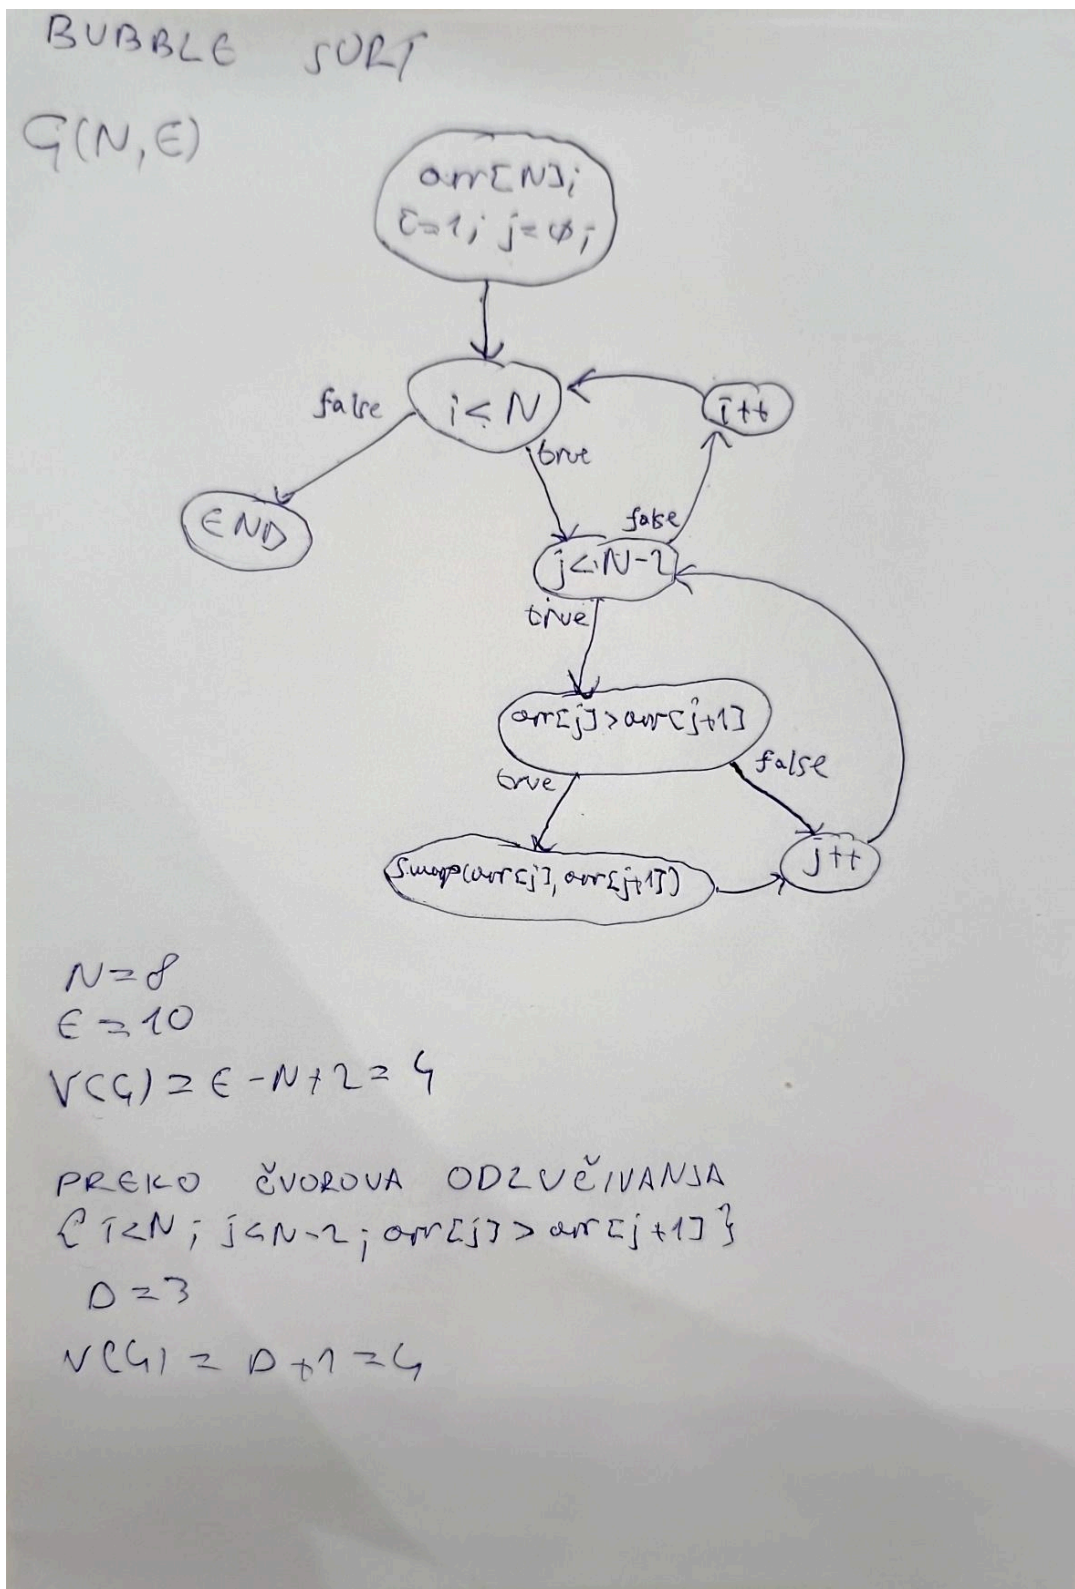 BUBBLE SORT
G(N,E)
arr[N];
i=1; j=0;
i<N
false
true
i++
END
false
j<N-2
true
arr[j]>arr[j+1]
true
false
Swap(arr[j],arr[j+1])
j++
N=8
E=10
V(G)=E-N+2=4
PREKO ČVOROVA ODLUČIVANJA
{i<N; j<N-2; arr[j]>arr[j+1]}
D=3
V(G)=D+1=4